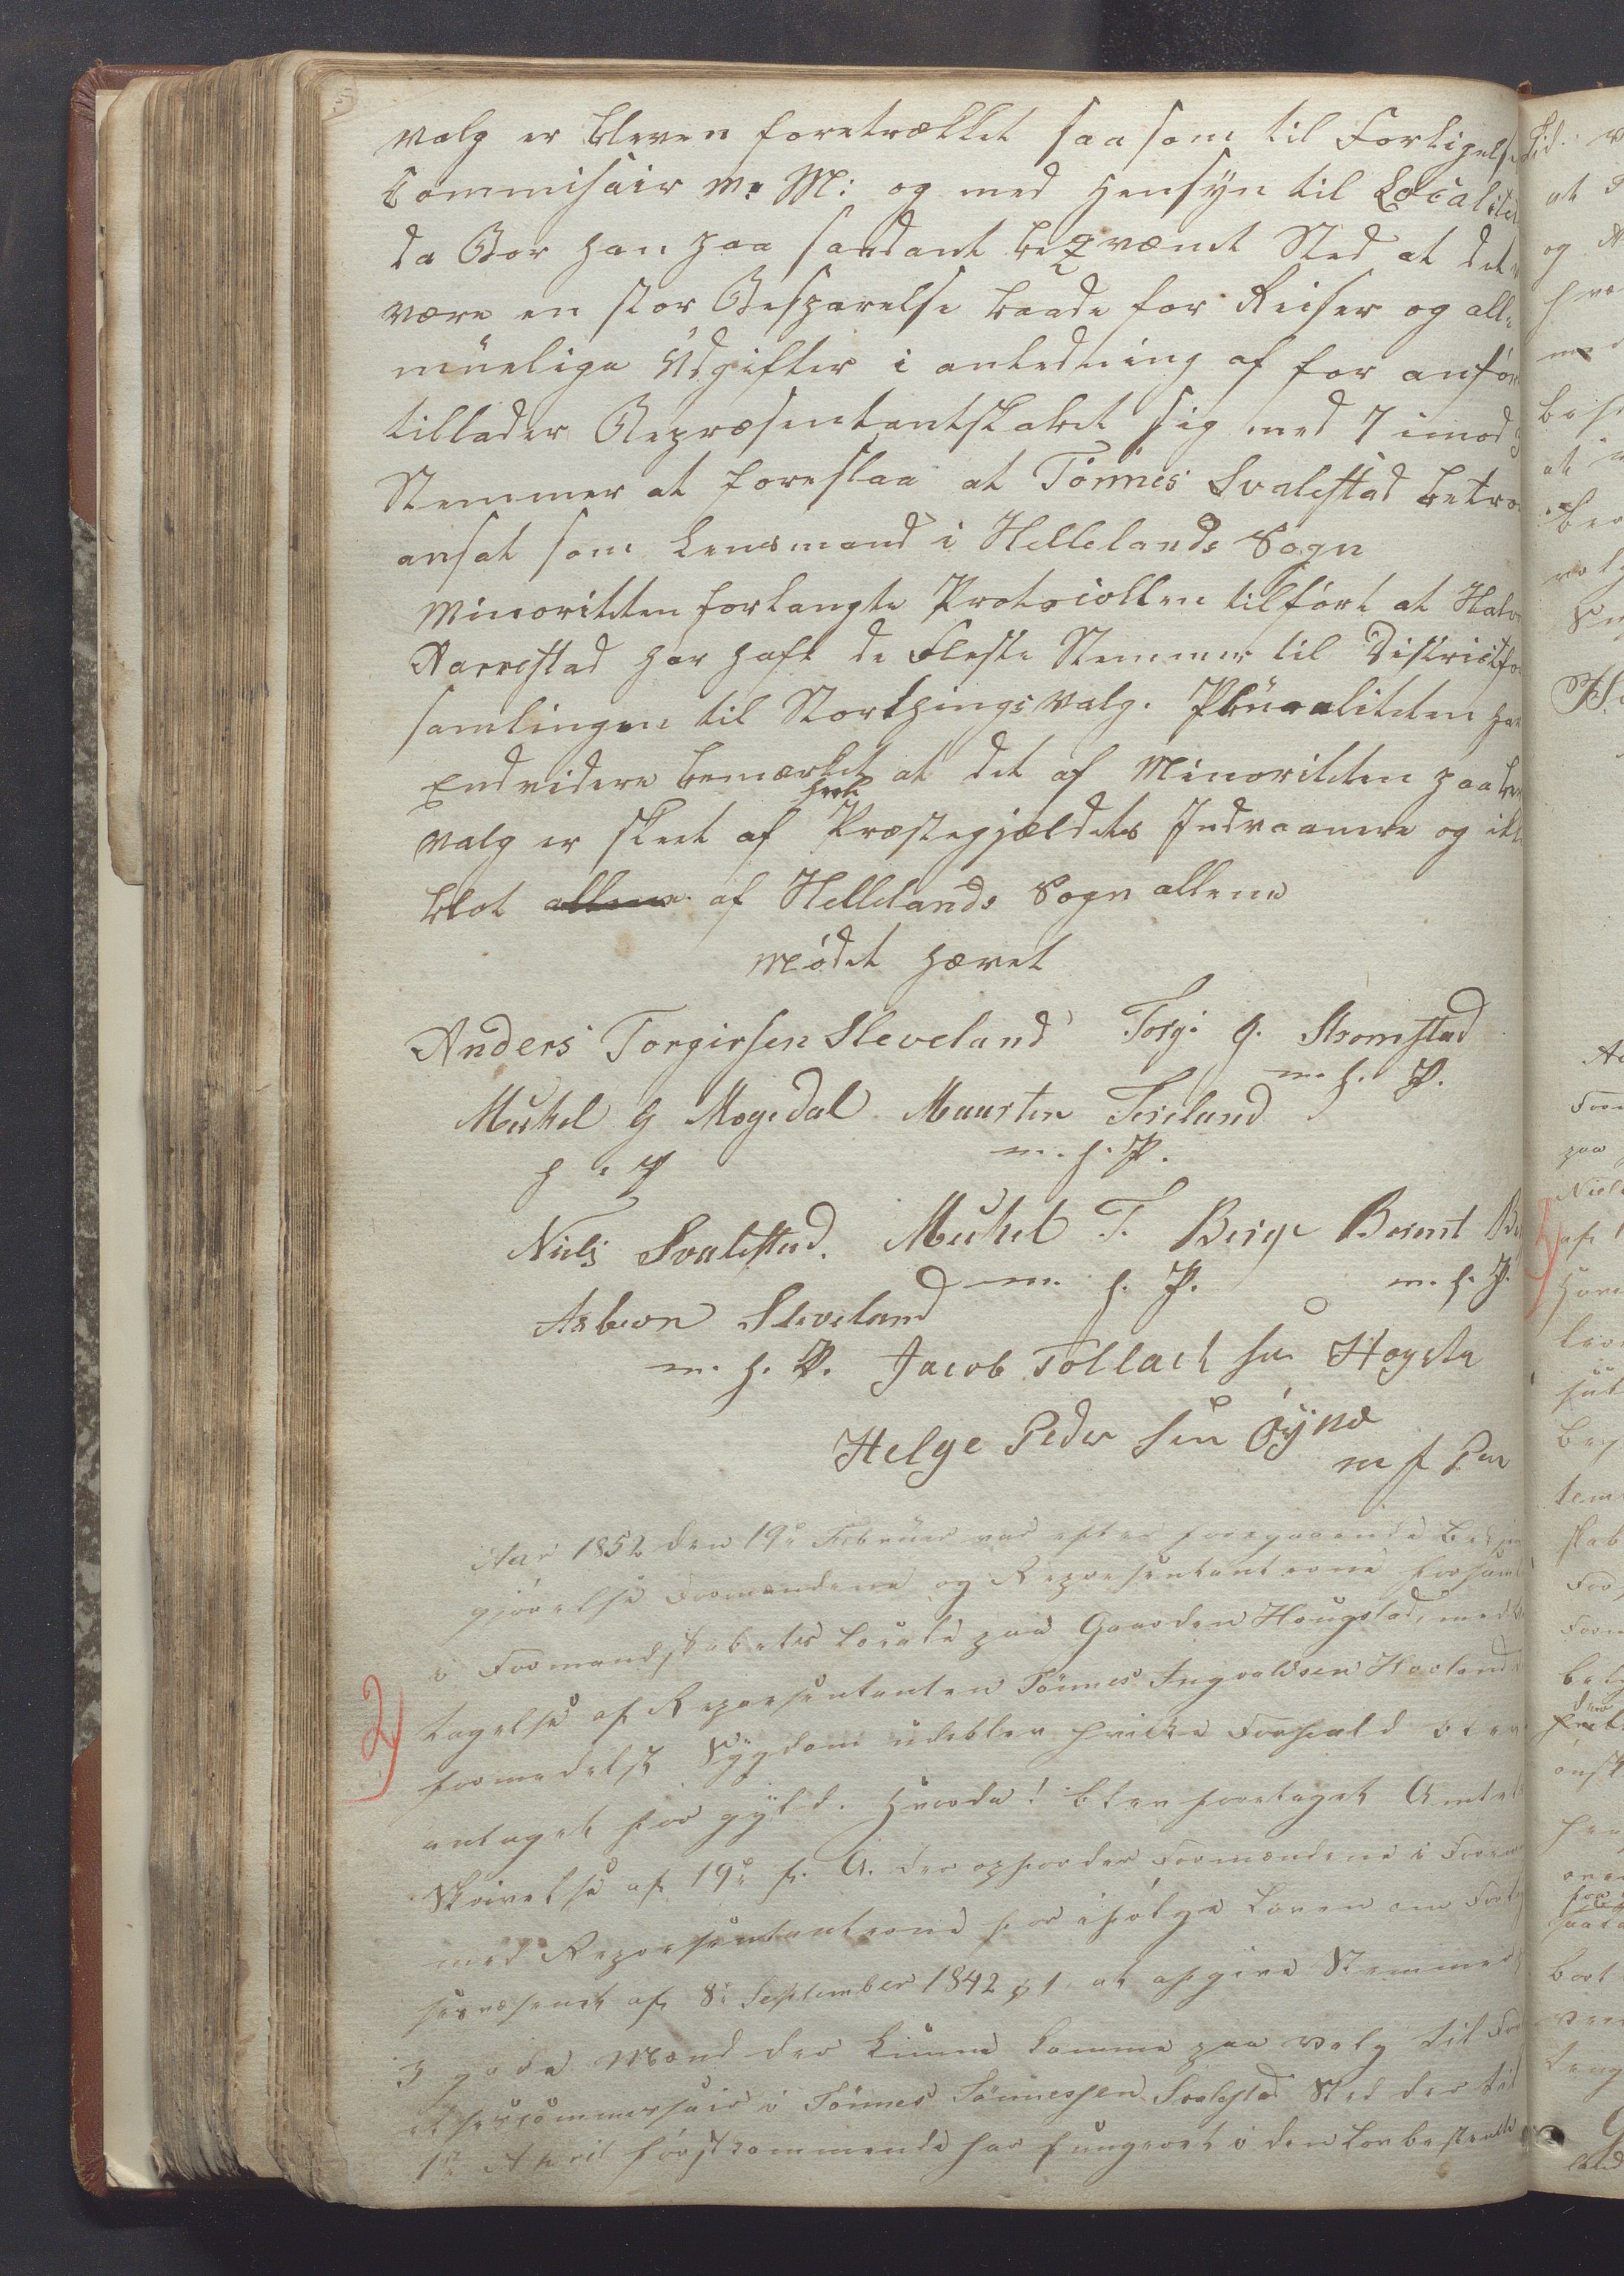 valg er bleven foretrækket saasom til Forligelse
Commisair m. M: og med Hensÿn til Localitet
da Bor han paa saadant beqvæmt Sted at det
være en stor Besparelse baade for Reiser og alle
müelige Udgifter i anledning af for anfør
tillader Repræsentantskabet sig med 7 imod
Stemmer at foreslaa at Tönnes Svalestad betro
ansat som Lensmand i Hellelands Sogn
Minoriteten forlangte Protocollen tilført at Halv
Aarrestad har haft de Fleste Stemmer til Districtfor
samlingen til Storthings Valg. Plüraliteten har
Endvidere bemærket at det af Minoriteten paabe
heele
valg er skeet af Præstegjældets Indvaanere og ikke
blot allene af Hellelands Sogn allene
Mødet hævet
Anders Torgirsen Sleveland Torj. G. Skromstad
m. h. P.
Mickel G Mogedal Maurten Terland
h. P m. h. P.
Niels Svalestad. Mickel T. Berge Berent B
m. h. P. m. h. P.
Asbeon Sleveland
m. h. P. Jacob Tollack sen Hogsta
Helge Peder sen Øÿno
m f Pen
Aar 1852 den 19de Februar var efter foregaaende Bekjen
gjørelse Formændene og Repræsentanterne forsamle
i Formandskabets Locale paa Gaarden Hougstad, med Und
tagelse af Repræsentanten Tönnes Ingvaldsen Hovland
2)
formedelst Sÿgdom udeblev hvilke Forfald blev
antaget for gÿld. Hvorda! blev foretaget Amtets
Skrivelse af 19de f. A. der opfordrer Formændene i Foren
med Repræsentanterne for ifølge Loven om Forlig
sesvæsenet af 8de September 1842 § 1, at afgive Stemmer
3 gode Mænd der kunne komme paa valg til For
elsescommissair i Tönnes Tönnessen Svalestad Sted der til
1ste April førstkommende har fungeret i den Lovbestemte